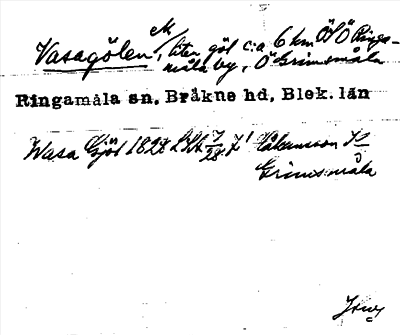 Vasagölen, liten göl c:a 6 km ÖSÖ Ringa-
måla by, Ö Grimsmåla
Ringamåla sn, Bråkne hd, Blek. län
Wasa Gjöl 1828 LSA Håkansson
Grimsmåla